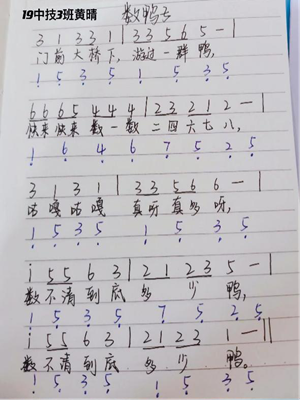 19中技3班黄晴
数鸭子
3 1 3 3 1 | 3 3 5 6 5 - |
门前大桥下,游过一群鸭,
1 5 3 5 1 5 3 5
6 6 6 5 4 4 4 | 2 3 2 1 2 - |
快来快来数一数 二四六七八,
1 6 4 6 7 5 2 5
3 1 3 1 | 3 3 5 6 6 - |
咕嘎咕嘎 真呀真多呀,
1 5 3 5 1 5 3 5
i 5 5 6 3 | 2 1 2 3 5 - |
数不清到底多少鸭,
1 5 3 5 7 5 2 5
i 5 5 6 3 | 2 1 2 3 1 - ||
数不清到底多少鸭。
1 5 3 5 1 5 3 5